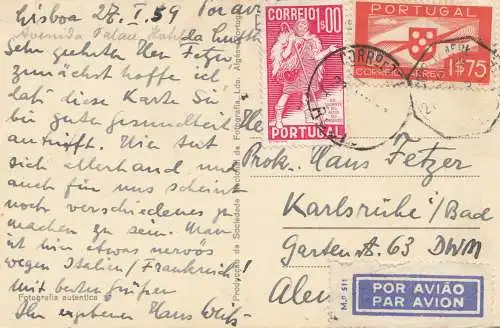 Lisboa 27.I.39 Par avion
Avenida Palace Hotel
Sehr geehrter Herr Fetzer
zunächst hoffe ich
daß diese Karte Sie
bei guter Gesundheit
antrifft. Hier tut
sich allerhand und
auch für uns scheint
noch verschiedenes zu
machen zu sein. Man
ist hier etwas nervös
wegen Italien/Frankreich
mit besten Grüßen
Ihr ergebener Hans
Fotografia autentica
Produção da Sociedade Nacional de Fotografia, Lda.
CORREIO 1$00
PORTUGAL
PORTUGAL
CORREIO AEREO 1$75
Prok. Hans Fetzer
Karlsruhe/Bad
Gartenstr. 63 DWM
POR AVIÃO
PAR AVION
M.º 511